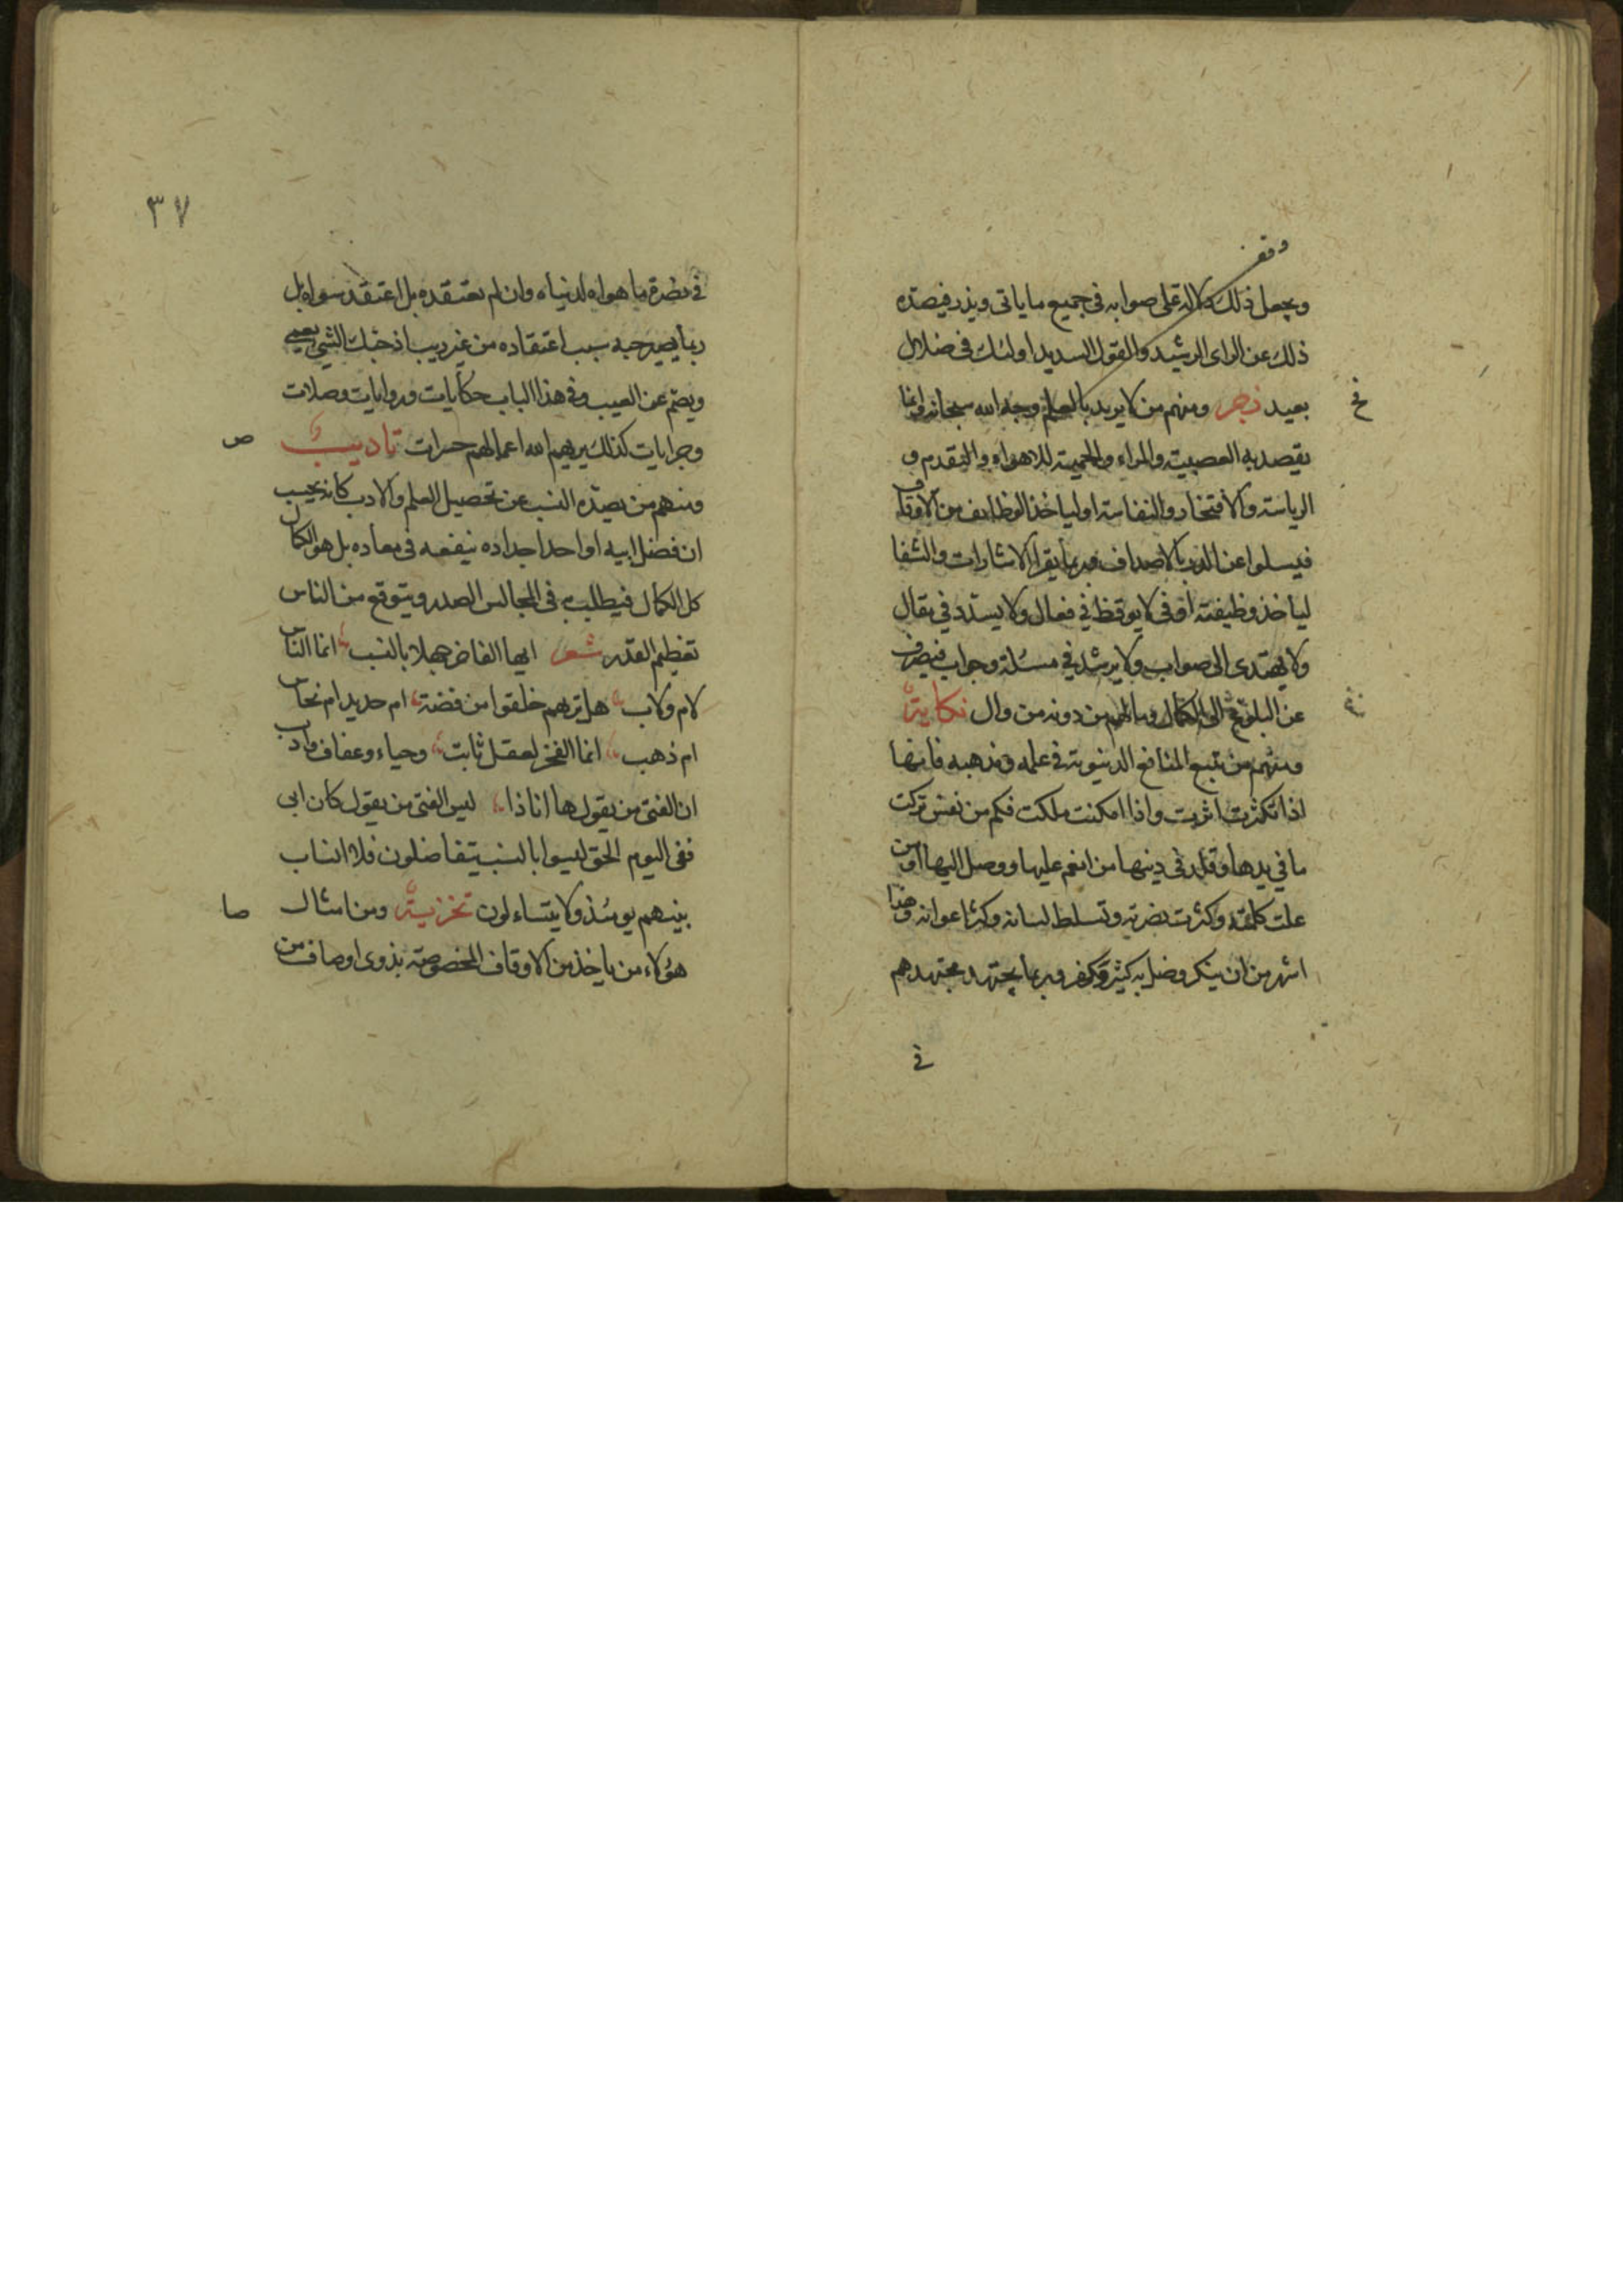 وقف
ويجعل ذلك دلالة على صوابه في جميع ما ياتى ويذر فيصده
ذلك عن الراى الرشيد والقول السديد اولئك في ضلال
بعيد زجر ومنهم من لا يريد بالعلم وجه الله سبحانه وانما
يقصد به العصبية والمراء والحمية للاهواء والتقدم و
الرياسة والافتخار والنفاسة او لياخذ الوظايف من الاوقاف
فيسلوا عن الدر بالاصداف وربما يقرا الاشارات والشفا
لياخذ وظيفة اوفى لا يوقظ في فعال ولا يسدد في مقال
ولا يهتدى الى صواب ولا يرشد في مسئلة وجواب فينصرف
عن البلوغ الى الكمال وما لهم من دونه من وال نكاية
ومنهم من تتبع المنافع الدنيوية في علمه ومذهبه فانها
اذا تكثرت اثرت واذا امكنت ملكت فكم من نفس تركت
ما في يدها وقلد في دينها من انعم عليها ووصل اليها او من
علت كلمته وكثرت نضرته وتسلط لسانه وكثر اعوانه وهذا
اشهر من ان ينكر وضل به كثير وكفر وربما يجتهد مجتهدهم
في
٣٧
في نصرة ما هواه لدنياه وان لم يعتقده بل اعتقد سواه بل
ربما يصير حبه سبب اعتقاده من غير ريب اذ حبك الشي يعمى
ويصم عن العيب وفي هذا الباب حكايات وروايات وصلات
وجرايات كذلك يريهم الله اعمالهم حسرات تاديب
ومنهم من يصده النسب عن تحصيل العلم والادب كانه يحسب
ان فضل ابيه او احد اجداده ينفعه في معاده بل هو الكمال
كل الكمال فيطلب في المجالس الصدر ويتوقع من الناس
تعظيم القدر شعر ايها الفاخر جهلا بالنسب انما الناس
لام ولاب هل ترهم خلقوا من فضة ام حديد ام نحاس
ام ذهب انما الفخر لعقل ثابت وحياء وعفاف وادب
ان الفتى من يقول ها انا ذا ليس الفتى من يقول كان ابى
ففى اليوم الحق ليسوا بالنسب يتفاضلون فلا انساب
بينهم يومئذ ولا يتساءلون تخزية ومن امثال
هؤلاء من ياخذ من الاوقاف المخصوصة بذوى اوصاف من